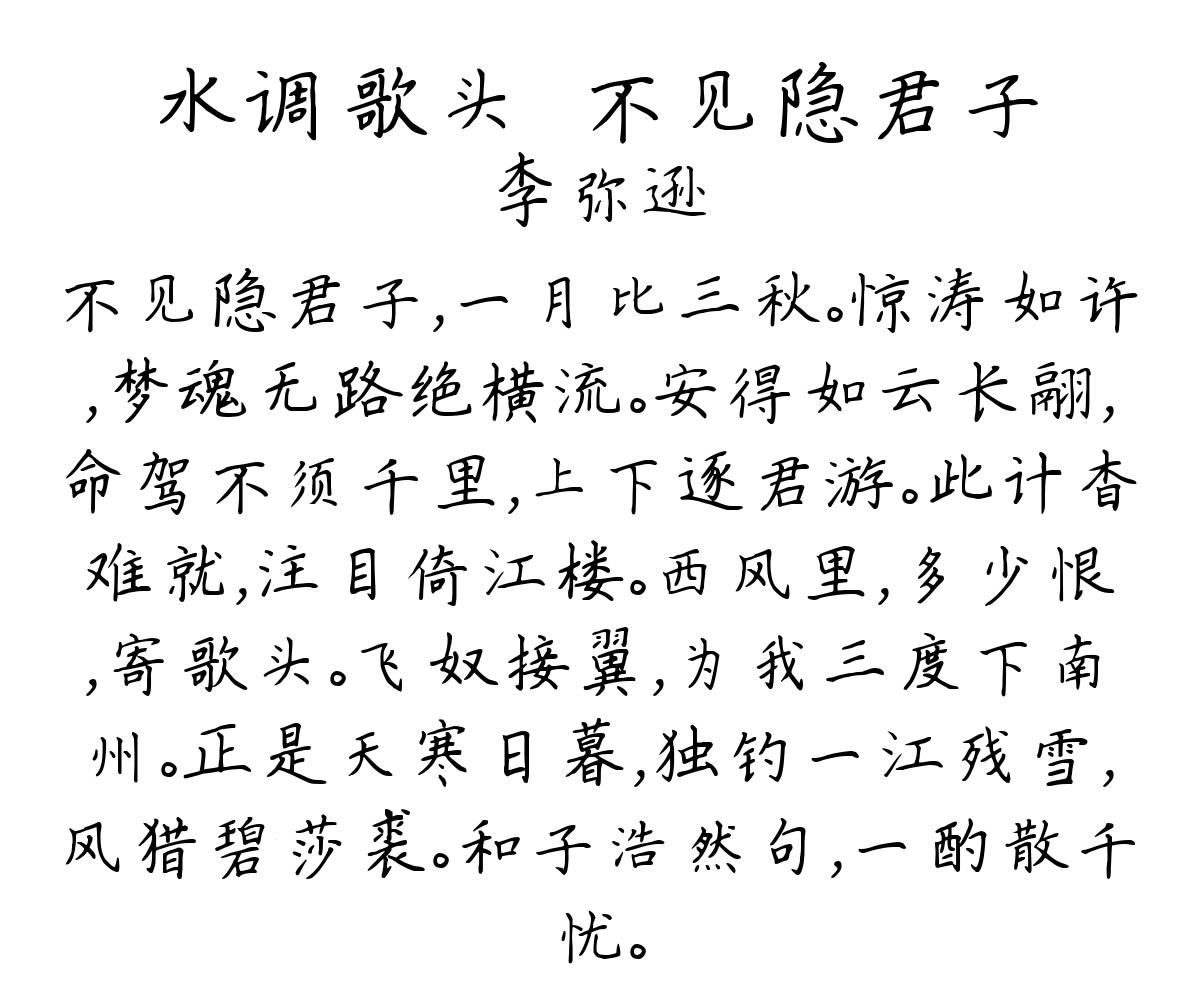 水调歌头 不见隐君子
李弥逊
不见隐君子,一月比三秋。惊涛如许
,梦魂无路绝横流。安得如云长翮,
命驾不须千里,上下逐君游。此计杳
难就,注目倚江楼。西风里,多少恨
,寄歌头。飞奴接翼,为我三度下南
州。正是天寒日暮,独钓一江残雪,
风猎碧莎裘。和子浩然句,一酌散千
忧。